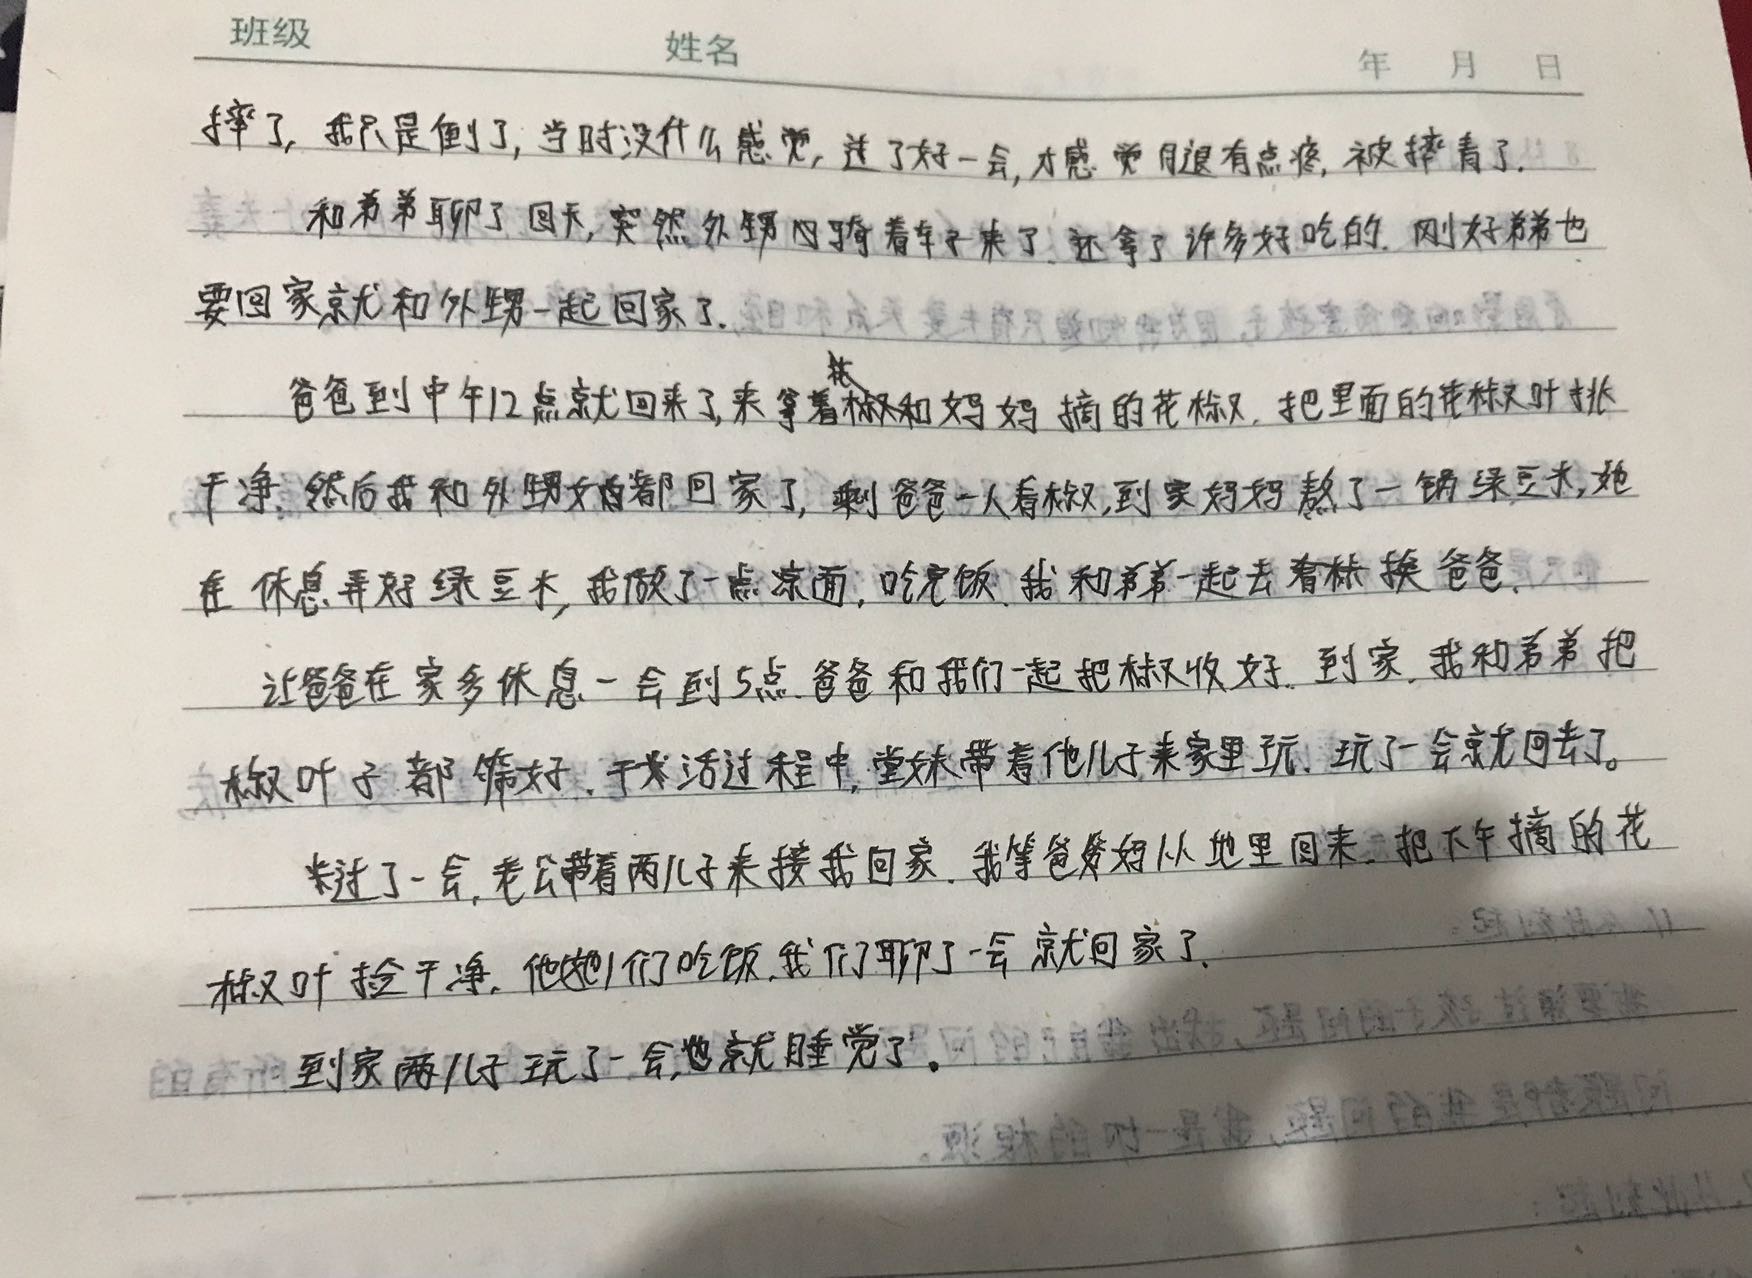 班级 姓名 年 月 日
摔了, 我只是倒了, 当时没什么感觉, 过了好一会, 才感觉腿有点疼, 被摔青了.
和弟弟聊了回天, 突然外甥骑着车子来了. 还拿了许多好吃的. 刚好弟弟也
要回家就和外甥一起回家了.
爸爸到中午12点就回来了, 来拿着椒和妈妈摘的花椒. 把里面的花椒叶挑
干净. 然后我和外甥女都回家了, 剩爸爸一人看椒, 到家妈妈熬了一锅绿豆水, 她
在休息弄好绿豆水, 我做了一点凉面, 吃完饭. 我和弟弟一起去看椒换爸爸.
让爸爸在家多休息一会到5点. 爸爸和我们一起把椒收好. 到家. 我和弟弟把
椒叶子都筛好. 干活过程中, 堂妹带着他儿子来家里玩. 玩了一会就回去了。
过了一会, 老公带着两儿子来接我回家. 我等爸妈从地里回来. 把下午摘的花
椒叶捡干净. 他们吃饭. 我们聊了一会就回家了.
到家两儿子玩了一会, 也就睡觉了。